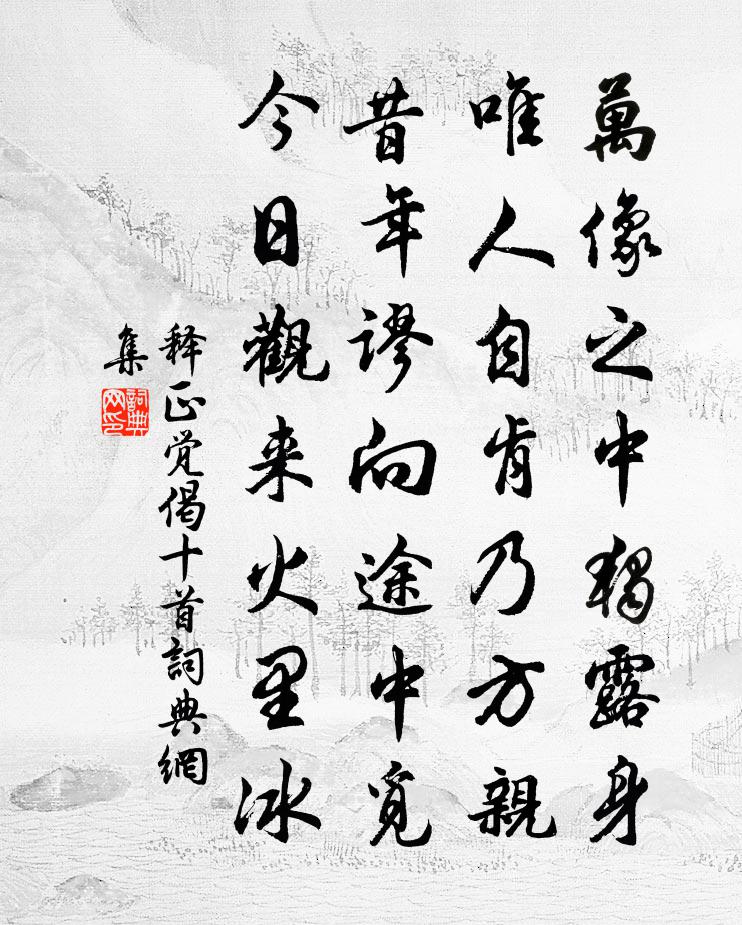 萬像之中獨露身
唯人自肯乃方親
昔年謬向途中覓
今日觀来火里冰
释正觉偈十首詞典網
集
詞典
网印